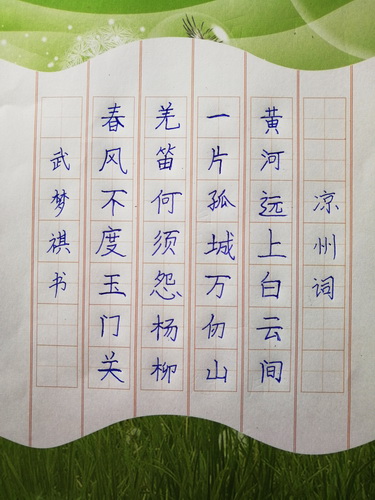 凉州词
黄河远上白云间
一片孤城万仞山
羌笛何须怨杨柳
春风不度玉门关
武梦祺书